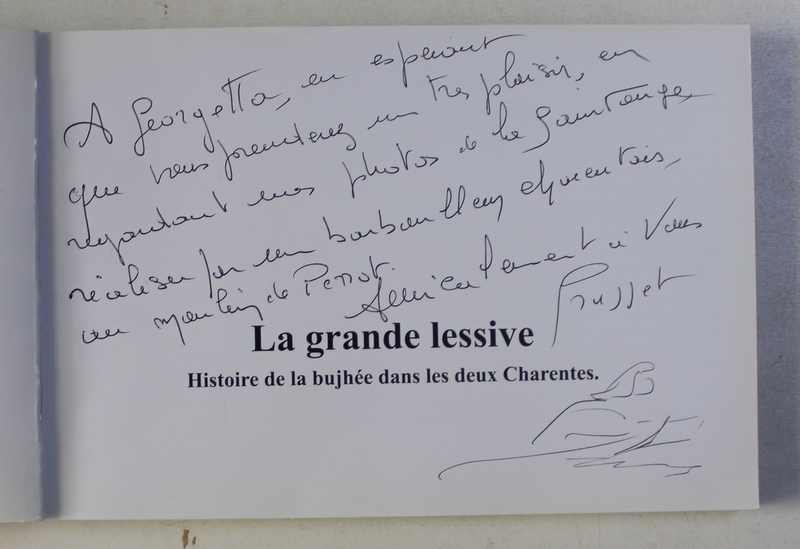 A Georgetta, en esperant
que vous prendrez un tres plaisir, en
regardant mes photos de la Saintonge,
réaliser par un barbouilleur charentais,
au moulin de Perrot.
Amicalement à Vous
La grande lessive
Histoire de la bujhée dans les deux Charentes.